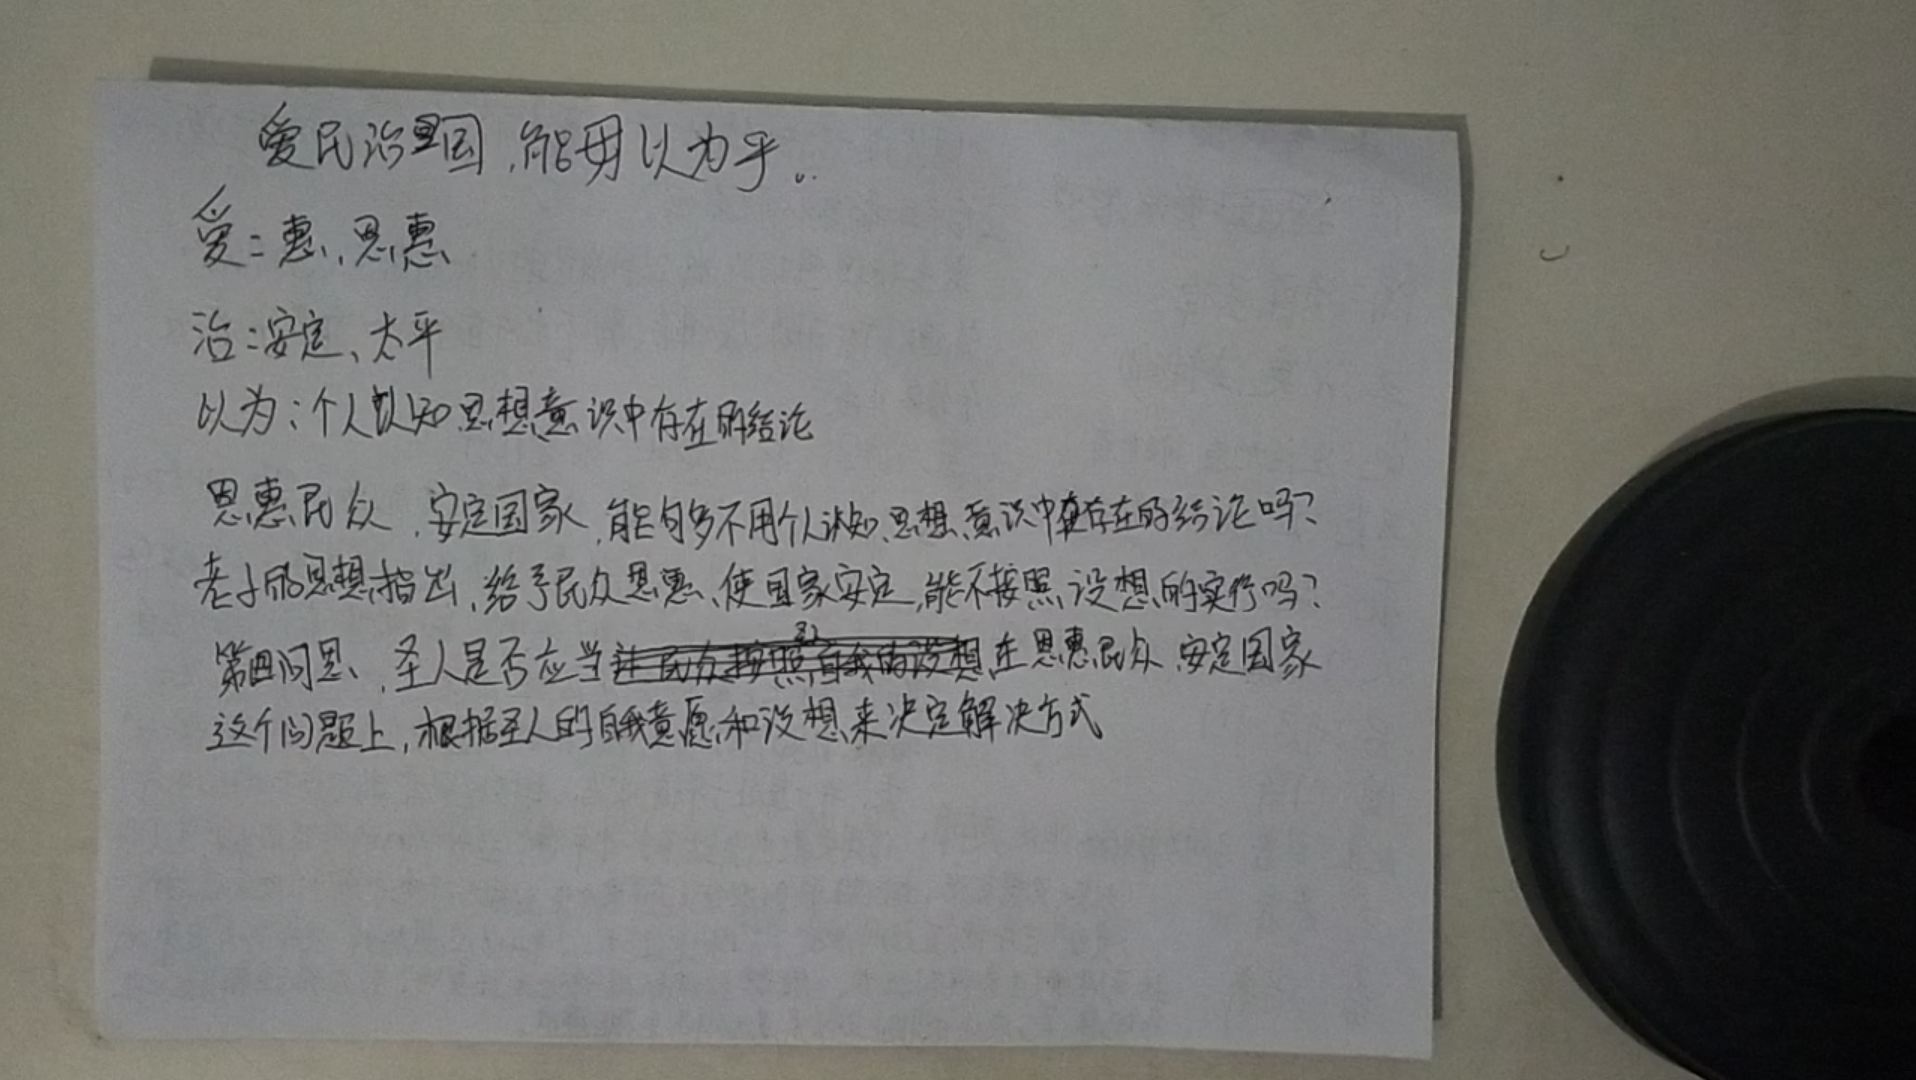 爱民治国,能毋以为乎。
爱:惠、恩惠
治:安定、太平
以为:个人认知思想意识中存在的结论
恩惠民众,安定国家,能够不用个人认知、思想、意识中存在的结论吗?
老子的思想指出,给予民众恩惠、使国家安定,能不按照设想的实行吗?
第四问思、圣人是否应当在恩惠民众、安定国家
这个问题上,根据圣人的自我意愿和设想来决定解决方式